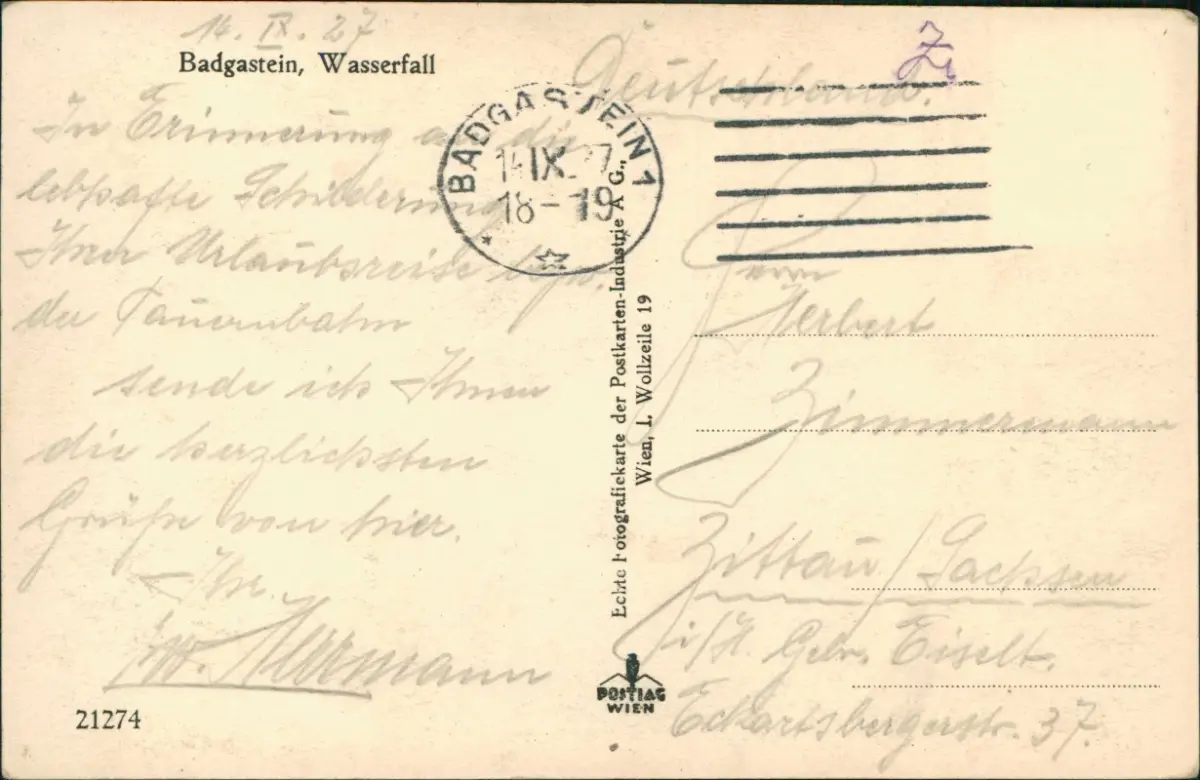 14. IX. 27
Badgastein, Wasserfall
In Erinnerung an die
lebhafte Schilderung
Ihrer Urlaubsreise bzw.
der Tauernbahn
sende ich Ihnen
die herzlichsten
Grüße von hier.
Ihr
Herrmann
21274
BADGASTEIN 1
14.IX.27
18-19
Echte Fotografiekarte der Postkarten-Industrie A G.,
Wien, I. Wollzeile 19
POSTIAG
WIEN
Deutschland.
Herrn
Herbert
Zimmermann
Zittau/Sachsen
i/H. Gebr. Eiselt.
Eckartsbergerstr. 37.